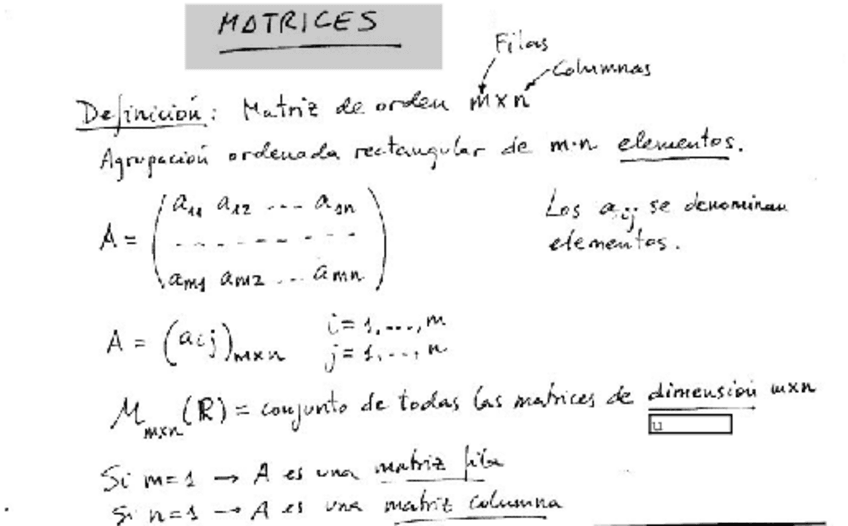 MATRICES
Filas
Columnas
Definición: Matriz de orden m×n
Agrupación ordenada rectangular de m·n elementos.
A = ( a11 a12 --- a1n
- - - - - - - - -
am1 am2 ... amn )
Los aij se denominan
elementos.
A = (aij)m×n i=1,...,m
j=1,...,n
Mm×n(R) = conjunto de todas las matrices de dimensión m×n
u
Si m=1 → A es una matriz fila
Si n=1 → A es una matriz columna